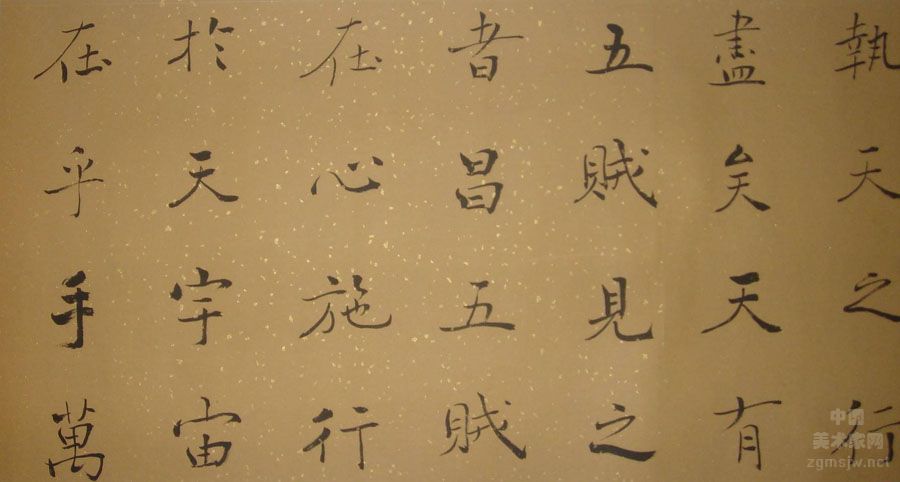 執天之行
盡矣天有
五賊見之
者昌五賊
在心施行
於天宇宙
在乎手萬
中國美术家网
zgmsjw.net